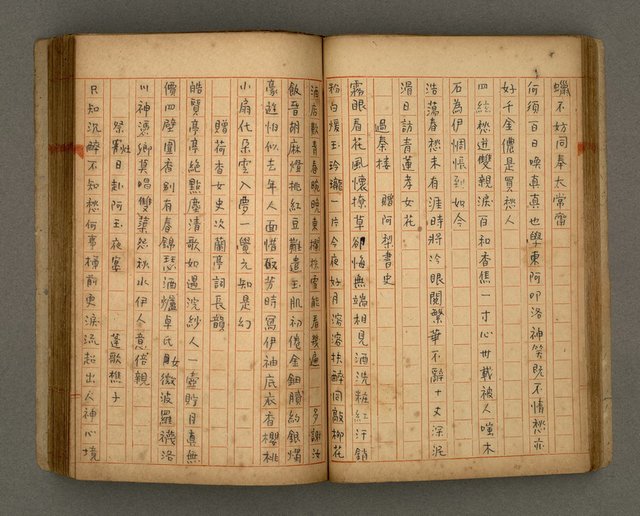 蠟不妨同奉太常齋
何須百日喚真真也學東阿叩洛神笑既不情愁亦
好千金償是買愁人
四絃愁迸雙親淚百和香焦一寸心卅載被人嗤木
石為伊惆悵到如今
浩蕩春愁未有涯時將冷眼閱繁華不辭十丈深泥
濁日訪青蓮孝女花
過秦樓　贈阿梨書史
霧眼看花風懷撩草卻悔無端相見酒洗粧紅汗銷
粉白煖玉玲瓏一片今夜好月溶溶扶醉同敲柳花
酒店數青春晼晚東欄株雪能看幾遍　多謝汝
飯晉胡麻燈挑紅豆難遣玉肌初倦金鈿賸約銀燭
豪遊怕似去年人面惜取芳時寫伊袖底衣香櫻桃
小扇代朵雲入夢一覺元知是幻
贈荷香女史次蘭亭詞長韻
皓質亭亭絶點塵清歌如過浣紗人一壺貯月真無
價四壁圍香別有春錦瑟酒爐卓氏女微波羅襪洛
川神憑卿莫唱雙蕖怨秋水伊人意倍親
祭灶日赴阿玉夜宴　蓬歌樵子
只知沉醉不知愁何事樽前更淚流超出人神心境